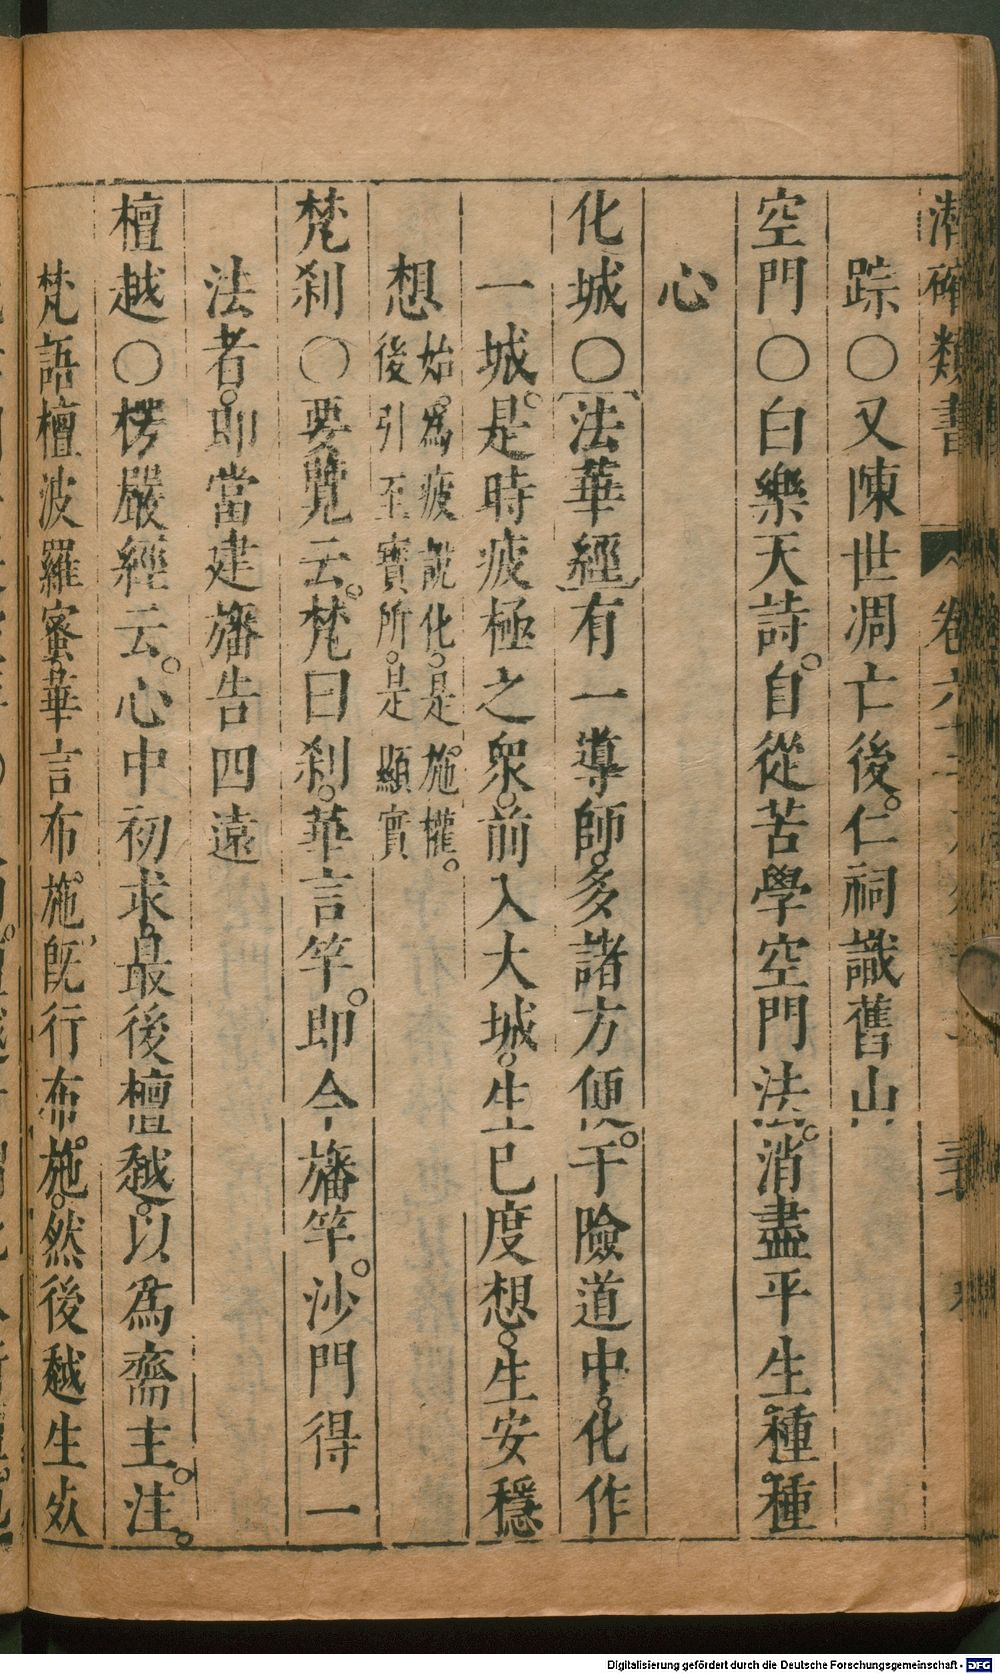 潛確類書 卷六十
踪〇又陳世凋亡後。仁祠識舊山
空門〇白樂天詩。自從苦學空門法。消盡平生種種
心
化城〇法華經有一導師。多諸方便。于險道中。化作
一城。是時疲極之衆。前入大城。生已度想。生安穩
想始。為疲說化。是施權。
後引至寶所。是顯實
梵刹〇要覽云。梵曰刹。華言竿。即今旛竿。沙門得一
法者。即當建旛告四遠
檀越〇楞嚴經云。心中初求。最後檀越。以為齋主。注。
梵語檀波羅蜜。華言布施。旣行布施。然後越生死
Digitalisierung gefördert durch die Deutsche Forschungsgemeinschaft - DFG